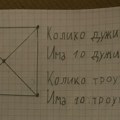 Колико дужи
Има 10 дужи
Колико троу
Има 10 троу